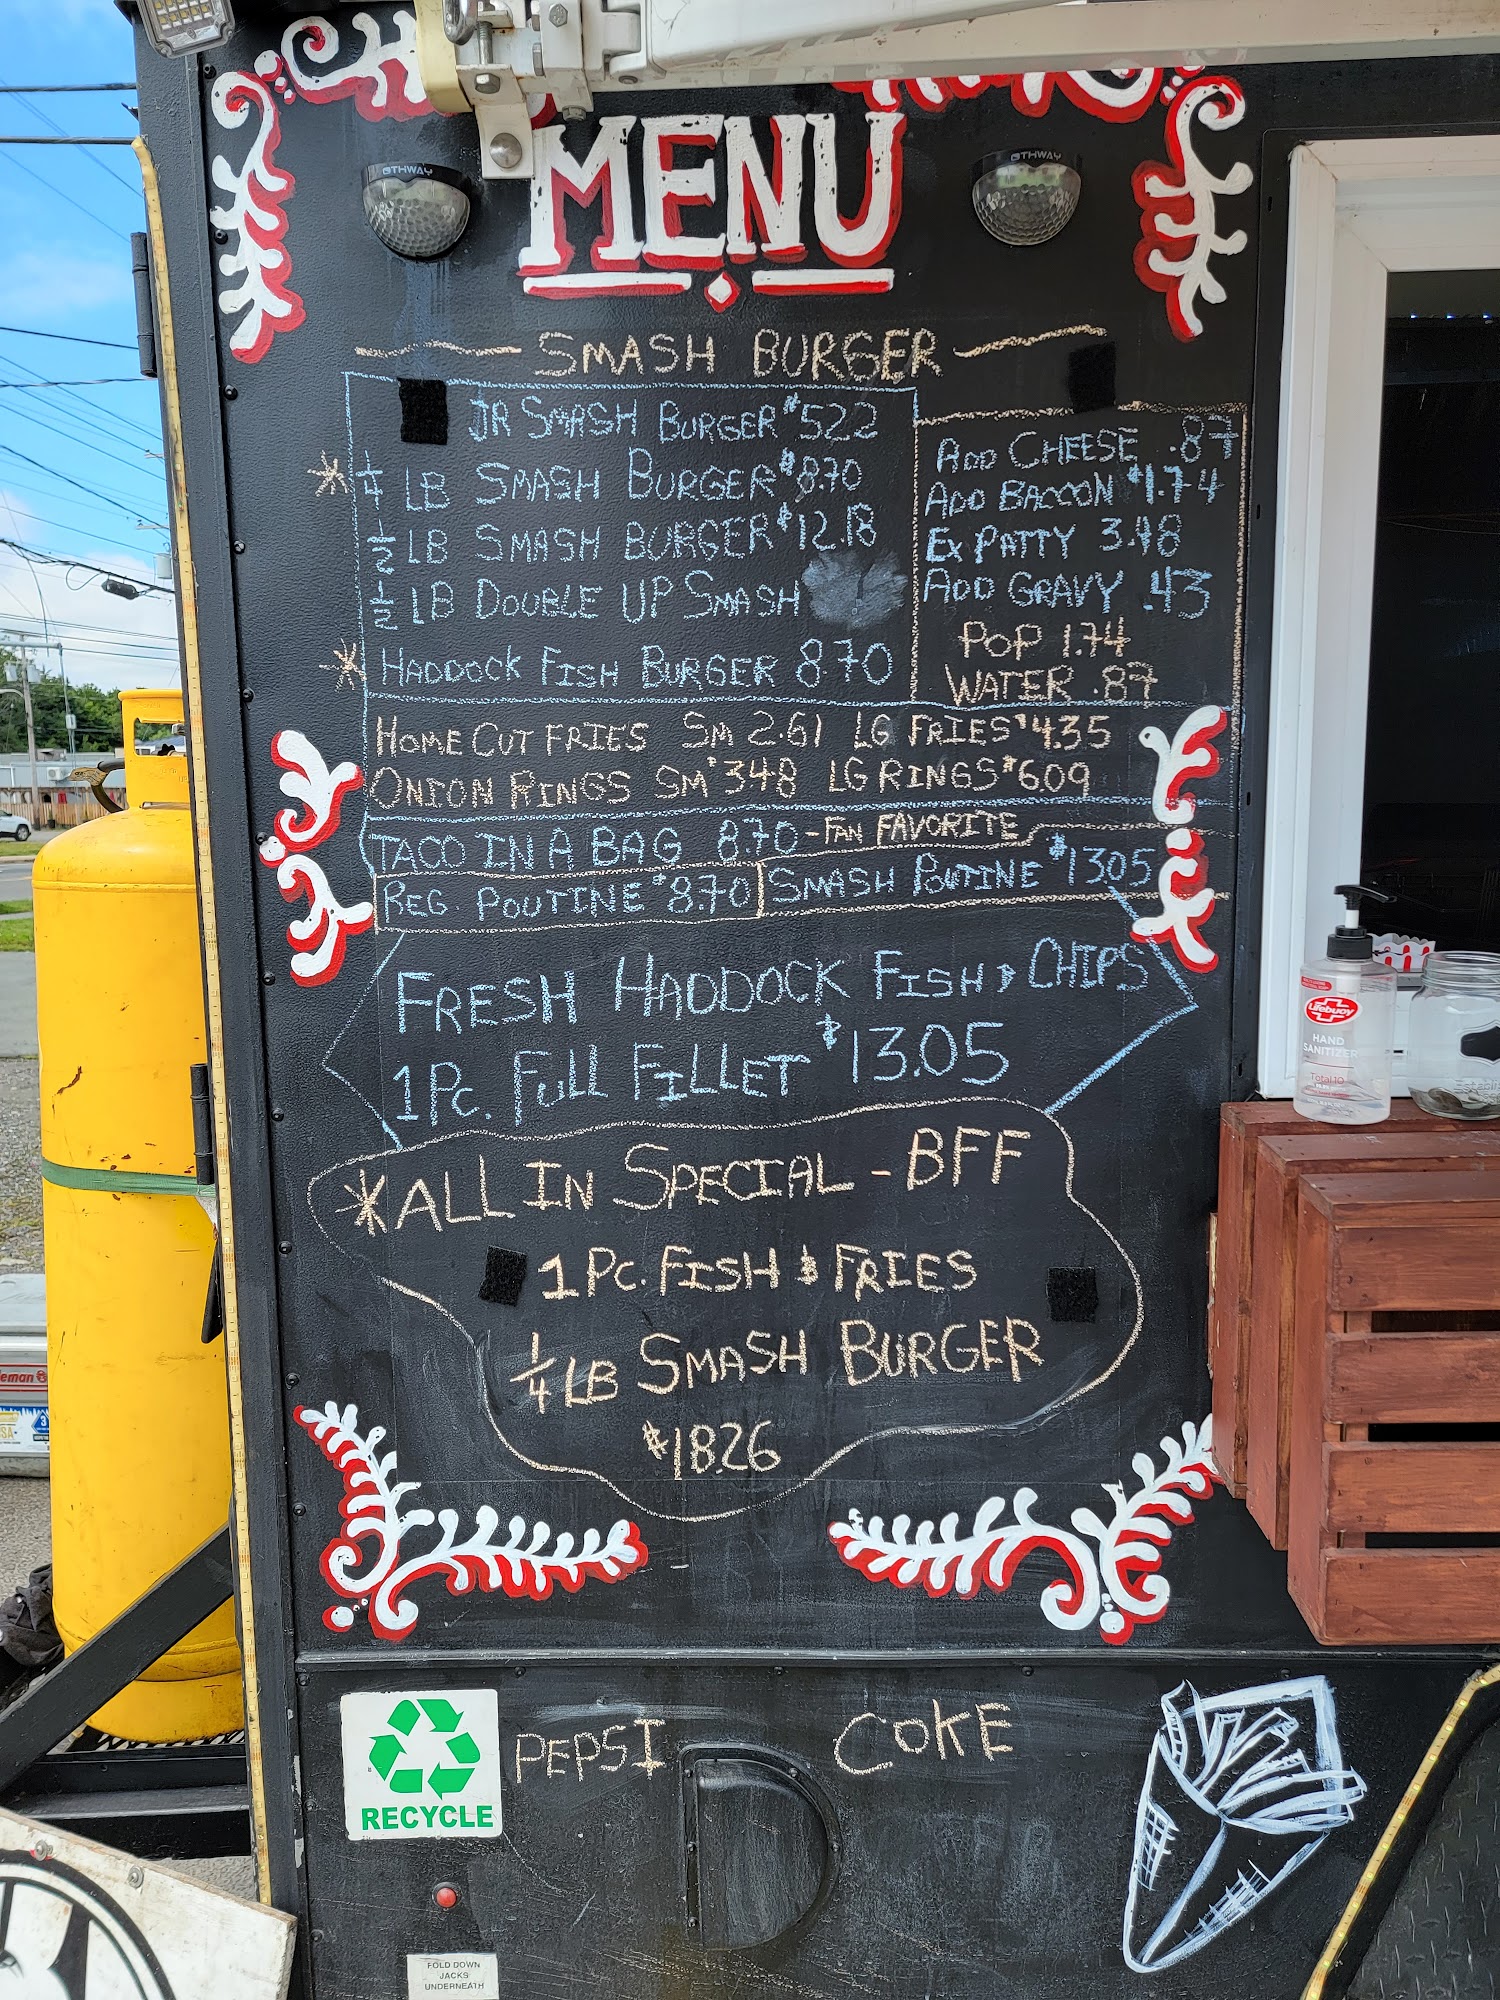 MENU
OTHWAY
OTHWAY
SMASH BURGER
JR SMASH BURGER $5.22
* 1/4 LB SMASH BURGER $8.70
1/2 LB SMASH BURGER $12.18
1/2 LB DOUBLE UP SMASH
* HADDOCK FISH BURGER 8.70
ADD CHEESE .87
ADD BACCON $1.74
EX PATTY 3.48
ADD GRAVY .43
POP 1.74
WATER .87
HOME CUT FRIES SM 2.61 LG FRIES $4.35
ONION RINGS SM $3.48 LG RINGS $6.09
TACO IN A BAG 8.70 - FAN FAVORITE
REG. POUTINE $8.70 SMASH POUTINE $13.05
FRESH HADDOCK FISH & CHIPS
1 PC. FULL FILLET $13.05
*ALL IN SPECIAL - BFF
1 PC. FISH & FRIES
1/4 LB SMASH BURGER
$18.26
Lifebuoy
HAND
SANITIZER
Total 10
PEPSI COKE
RECYCLE
FOLD DOWN
JACKS
UNDERNEATH